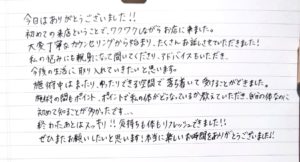 今日はありがとうございました!!
初めての来店ということで、ワクワクしながらお店に来ました。
大変丁寧なカウンセリングから始まり、たくさんお話しさせていただきました!
私の悩みにも親身になって聞いてくださり、アドバイスもいただき、
今後の生活に取り入れていきたいと思います。
施術中はまったり、ゆったりできる空間で落ち着いて受けることができました。
施術の間もポイント、ポイントで私の体がどうなっているか教えていただき、自分の体なのに
初めて知ることが多かったです…
終わったあとはスッキリ!!気持ちも体もリフレッシュできました!!
ぜひまたお願いしたいと思います!本当に楽しいお時間をありがとうございました!!